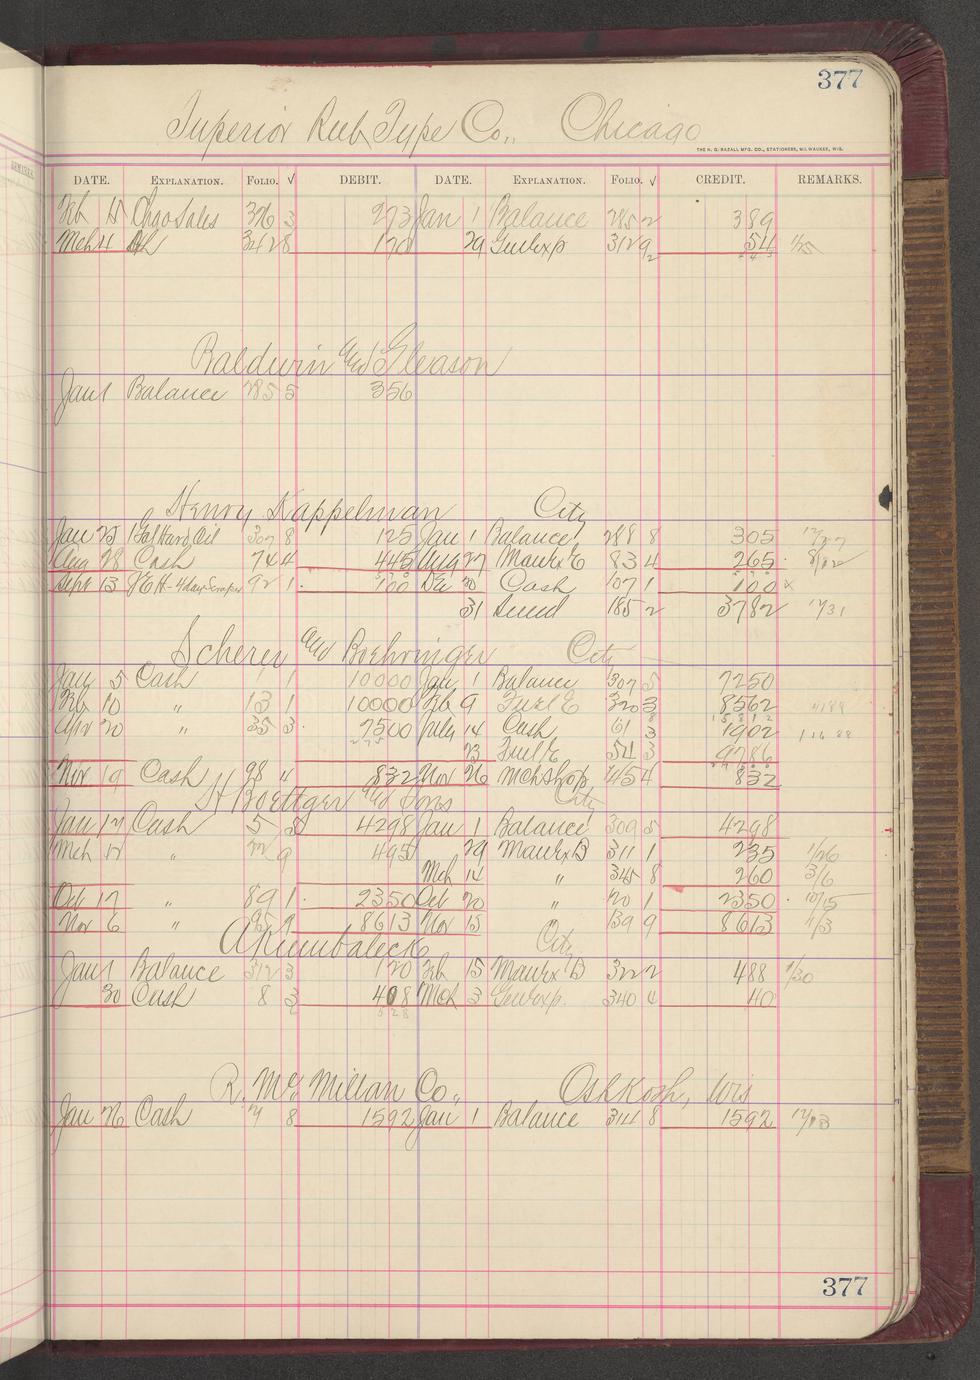 377
Superior Rub Type Co., Chicago
THE H. G. RAZALL MFG. CO., STATIONERS, MILWAUKEE, WIS.
DATE. EXPLANATION. FOLIO. √ DEBIT. DATE. EXPLANATION. FOLIO. √ CREDIT. REMARKS.
Feb 15 Chgo Sales 376 3 273 Jan 1 Balance 285 2 389
Mch 4 Ch 342 8 170 29 Gen Exp 312 9 54 1/25
Baldwin and Gleason
Jan 1 Balance 285 5 356
Henry Kappelman City
Jan 25 Gal Hard Oil 307 8 125 Jan 1 Balance 288 8 305
Aug 28 Cash 74 4 445 Aug 27 Manfx E 83 4 265
Sept 13 92 1 100 Dec 20 Cash 107 1 100 x
31 185 2 3782 12/31
Scherer and Boehringer City
Jan 5 Cash 1 1 10000 Jan 1 Balance 307 5 7250
Feb 10 " 13 1 10000 Feb 9 Fuel E 320 3 8562
Apr 20 " 35 3 7500 July 14 Cash 61 3 1902
23 Fuel E 54 3 9786
Nov 19 Cash 98 4 832 Nov 26 Mch Shop 145 4 832
H Boettger and Sons City
Jan 12 Cash 5 5 4298 Jan 1 Balance 309 5 4298
Mch 17 " 22 9 495 29 Manfx B 311 1 235 1/26
Mch 14 " 345 8 260 3/6
Oct 17 " 89 1 2350 Oct 20 " 120 1 2350 10/15
Nov 6 " 95 9 8613 Nov 15 " 139 9 8613 11/3
City
Jan 1 Balance 312 3 120 Feb 15 Manfx B 322 2 488 1/30
30 Cash 8 3 408 Mch 3 Gen Exp. 340 4 40
528
R. McMillan Co., Oshkosh, Wis
Jan 26 Cash 7 8 1592 Jan 1 Balance 314 8 1592 12/13
377